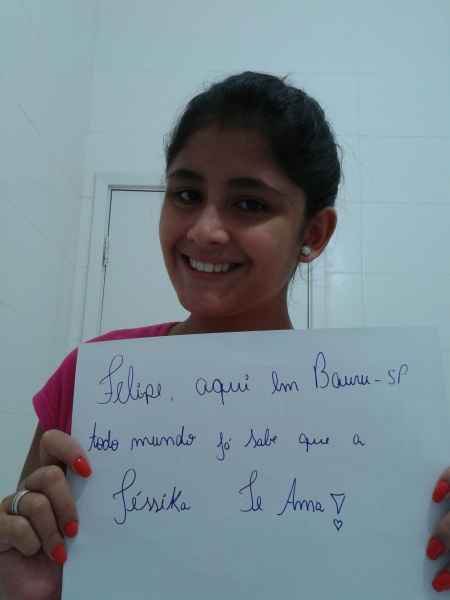 Felipe, aqui em Bauru-SP
todo mundo já sabe que a
Jéssika Te Ama!